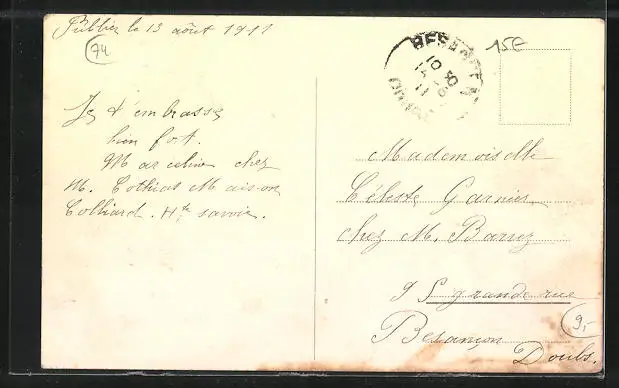 Publier le 13 août 1911
74
15E
BESANÇON
DOUBS
Je t'embrasse
bien fort.
Marceline chez
M. Cothias Maison
Colliard. Hte savoie.
Mademoiselle
Céleste Garnier
chez M. Barrez
95 grande rue
Besançon
Doubs.
9,-